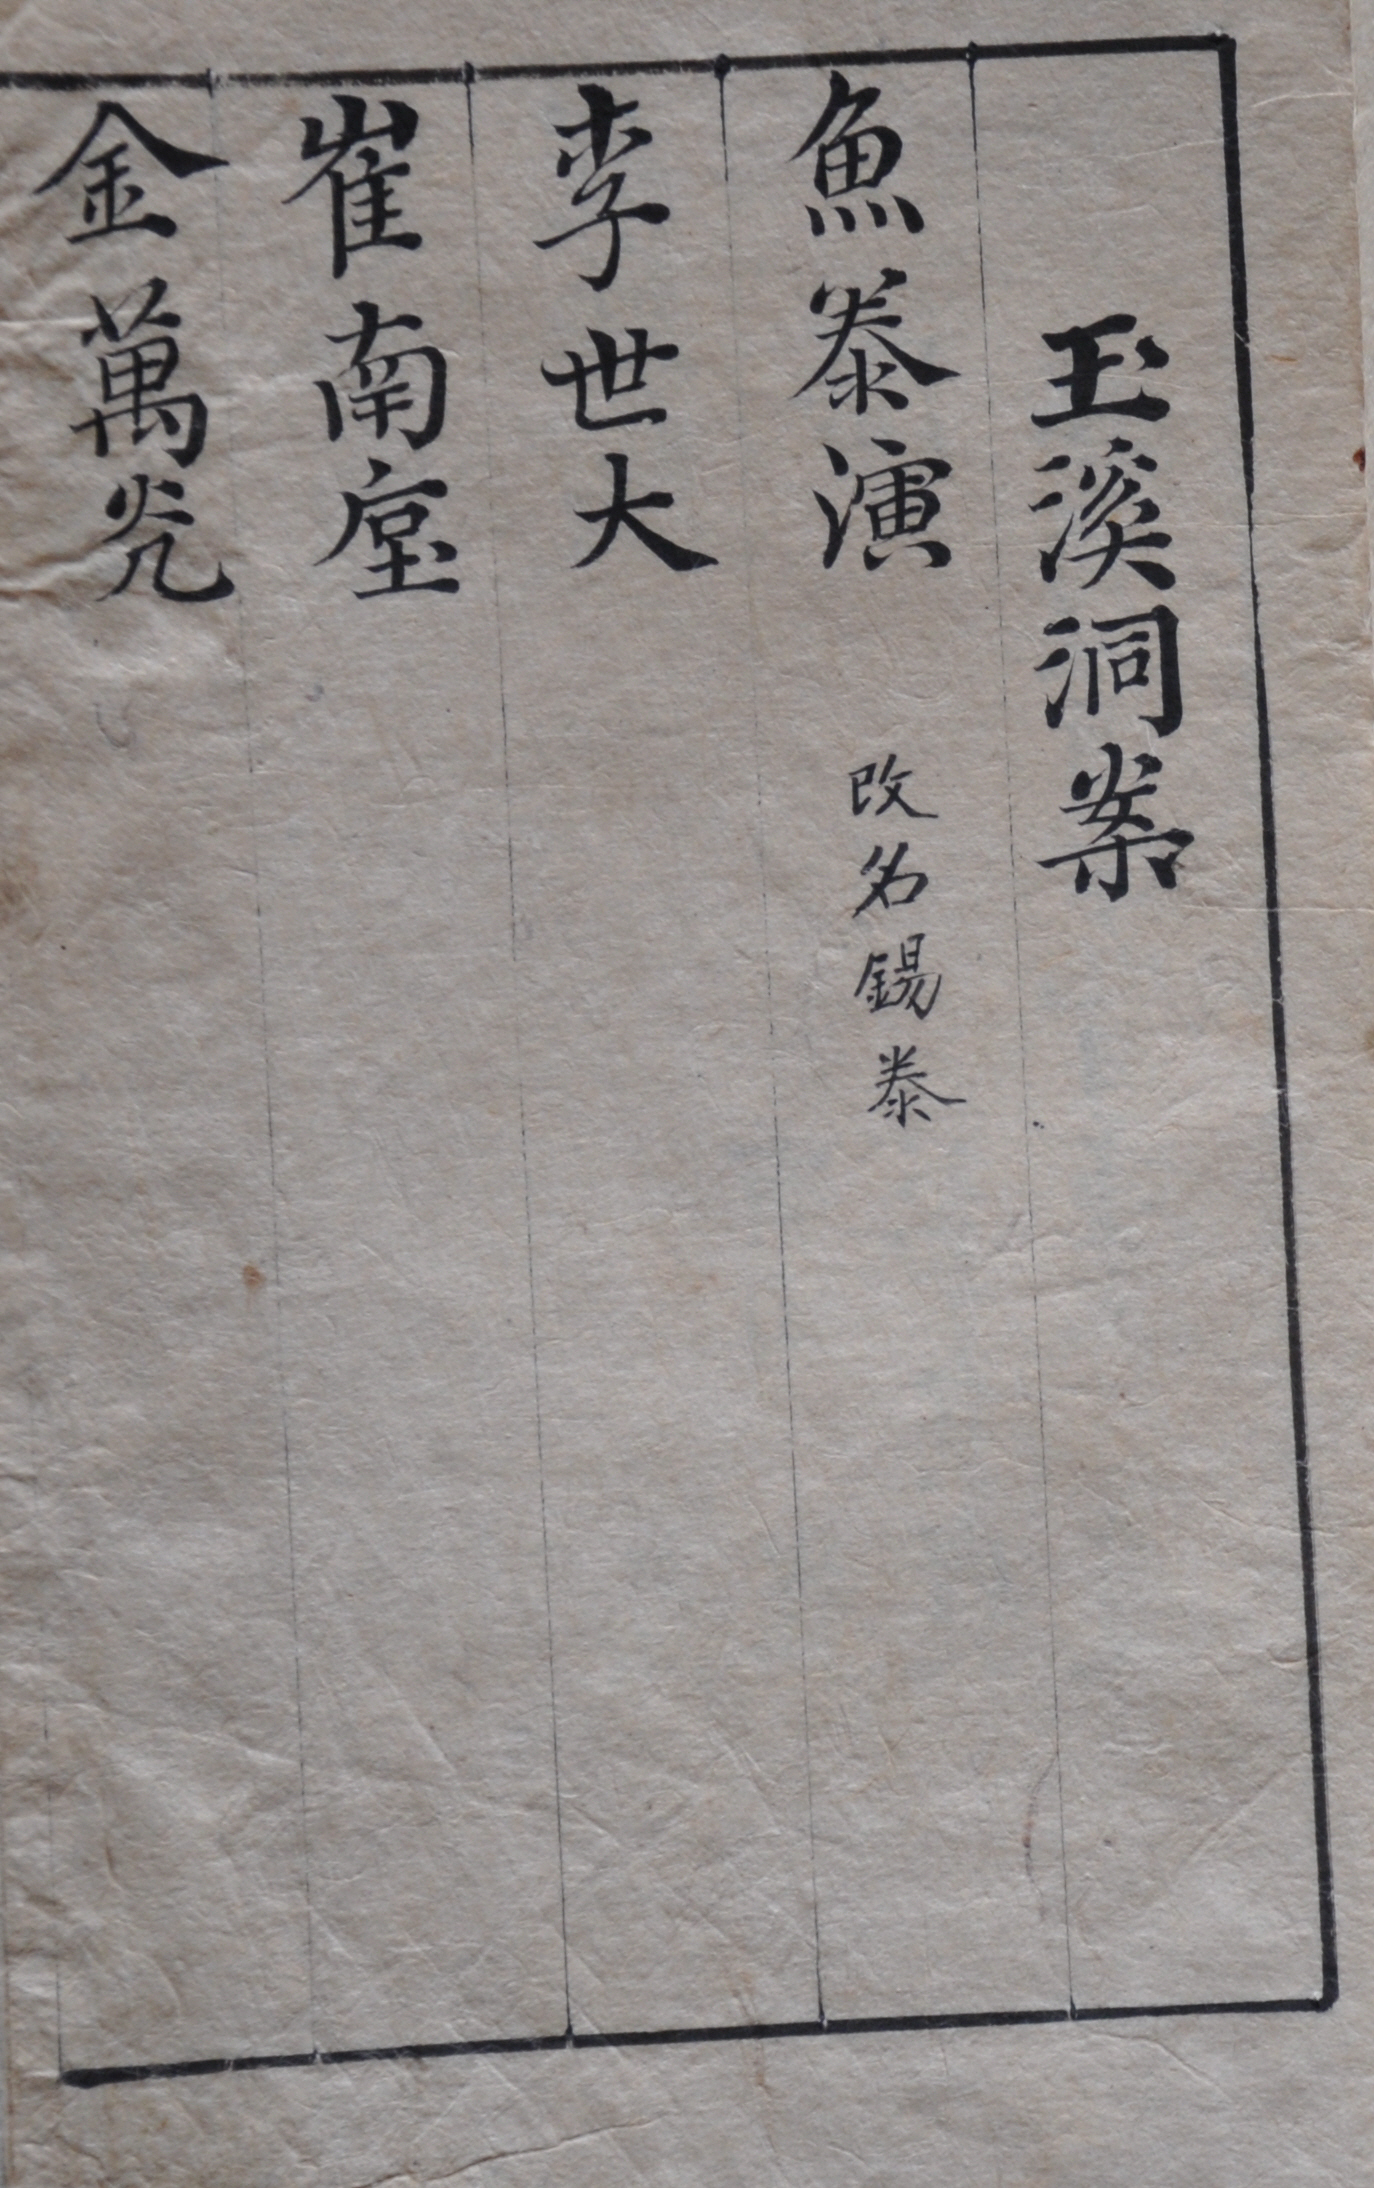 玉溪洞案
魚泰演 改名錫泰
李世大
崔南堊
金萬光